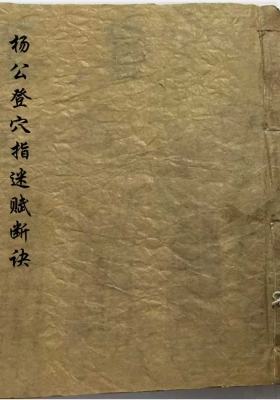 杨公登穴指迷赋断诀